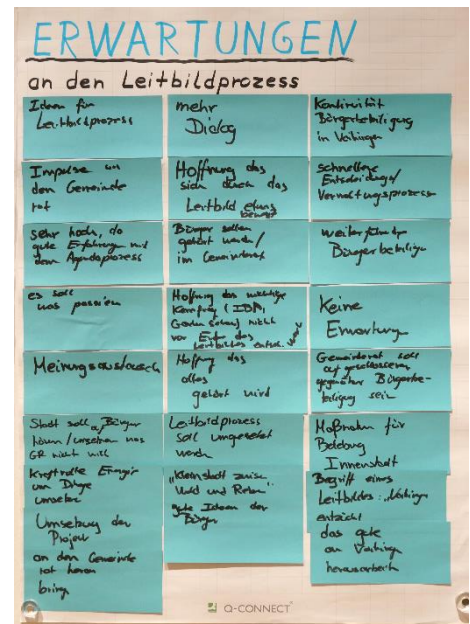 ERWARTUNGEN
an den Leitbildprozess
Ideen für
Leitbildprozess
Impulse an
den Gemeinde
rat
sehr hoch, da
gute Erfahrungen mit
dem Agendaprozess
es soll
was passieren
Meinungsaustausch
Stadt soll Bürger
hören/umsetzen was
GR nicht will
Kraftvolle Energie
um Dinge
umsetzen
Umsetzung der
Projekte
an den Gemeinde
rat heran
bringen
mehr
Dialog
Hoffnung das
sich durch das
Leitbild etwas
bewegt
Bürger sollen
gehört werden/
im Gemeinderat
Hoffnung das wichtige
nicht
vor Ende des
Leitbildes
Hoffnung das
alles
gehört wird
Leitbildprozess
soll umgesetzt
werden
"Kleinstadt zwischen
Wald und Reben"
gute Ideen der
Bürger
Kontinuität
Bürgerbeteiligung
in Vaihingen
schnellere
Entscheidungen/
Verwaltungsprozesse
weiterführende
Bürgerbeteiligung
Keine
Erwartung
Gemeinderat soll
aufgeschlossener
gegenüber Bürgerbe-
teiligung sein
Maßnahmen für
Belebung
Innenstadt
Begriff eines
Leitbildes: "Vaihingen
das gute
an Vaihingen
herausarbeiten
Q-CONNECT